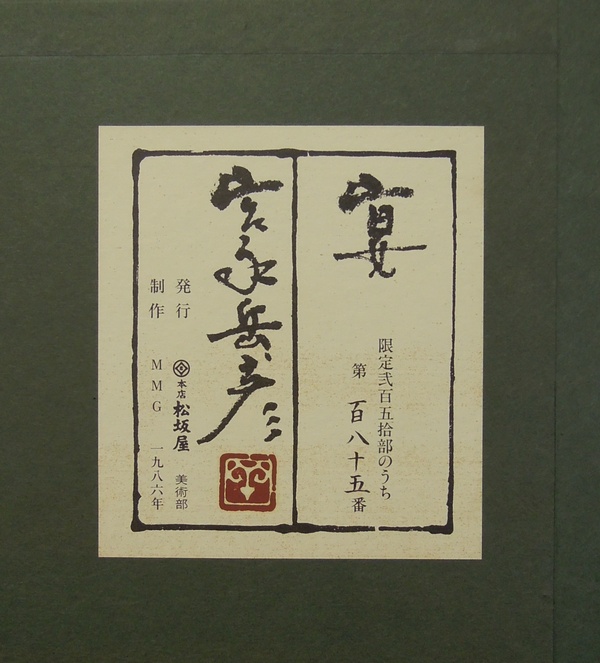 宴
限定弐百五拾部のうち
第 百八十五番
宮永岳彦
発行 本店 松坂屋 美術部
制作 MMG 一九八六年